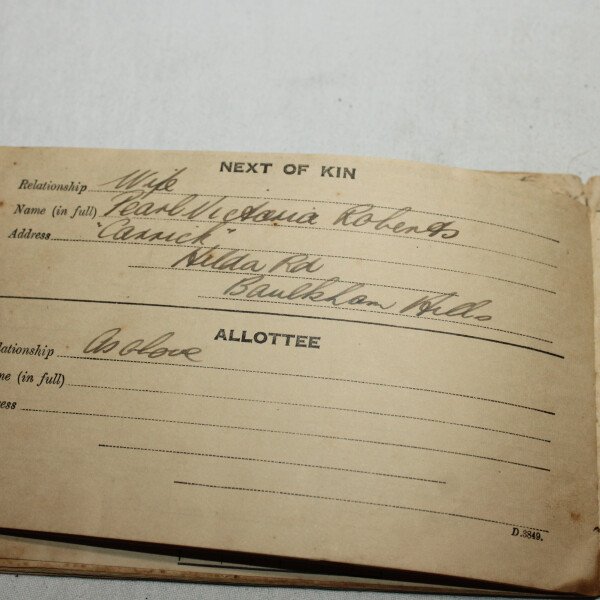 NEXT OF KIN
Relationship Wife
Name (in full) Pearl Victoria Roberts
Address "Carrick"
Hilda Rd
Baulkham Hills
ALLOTTEE
lationship As above
me (in full)
ress
D.3849.